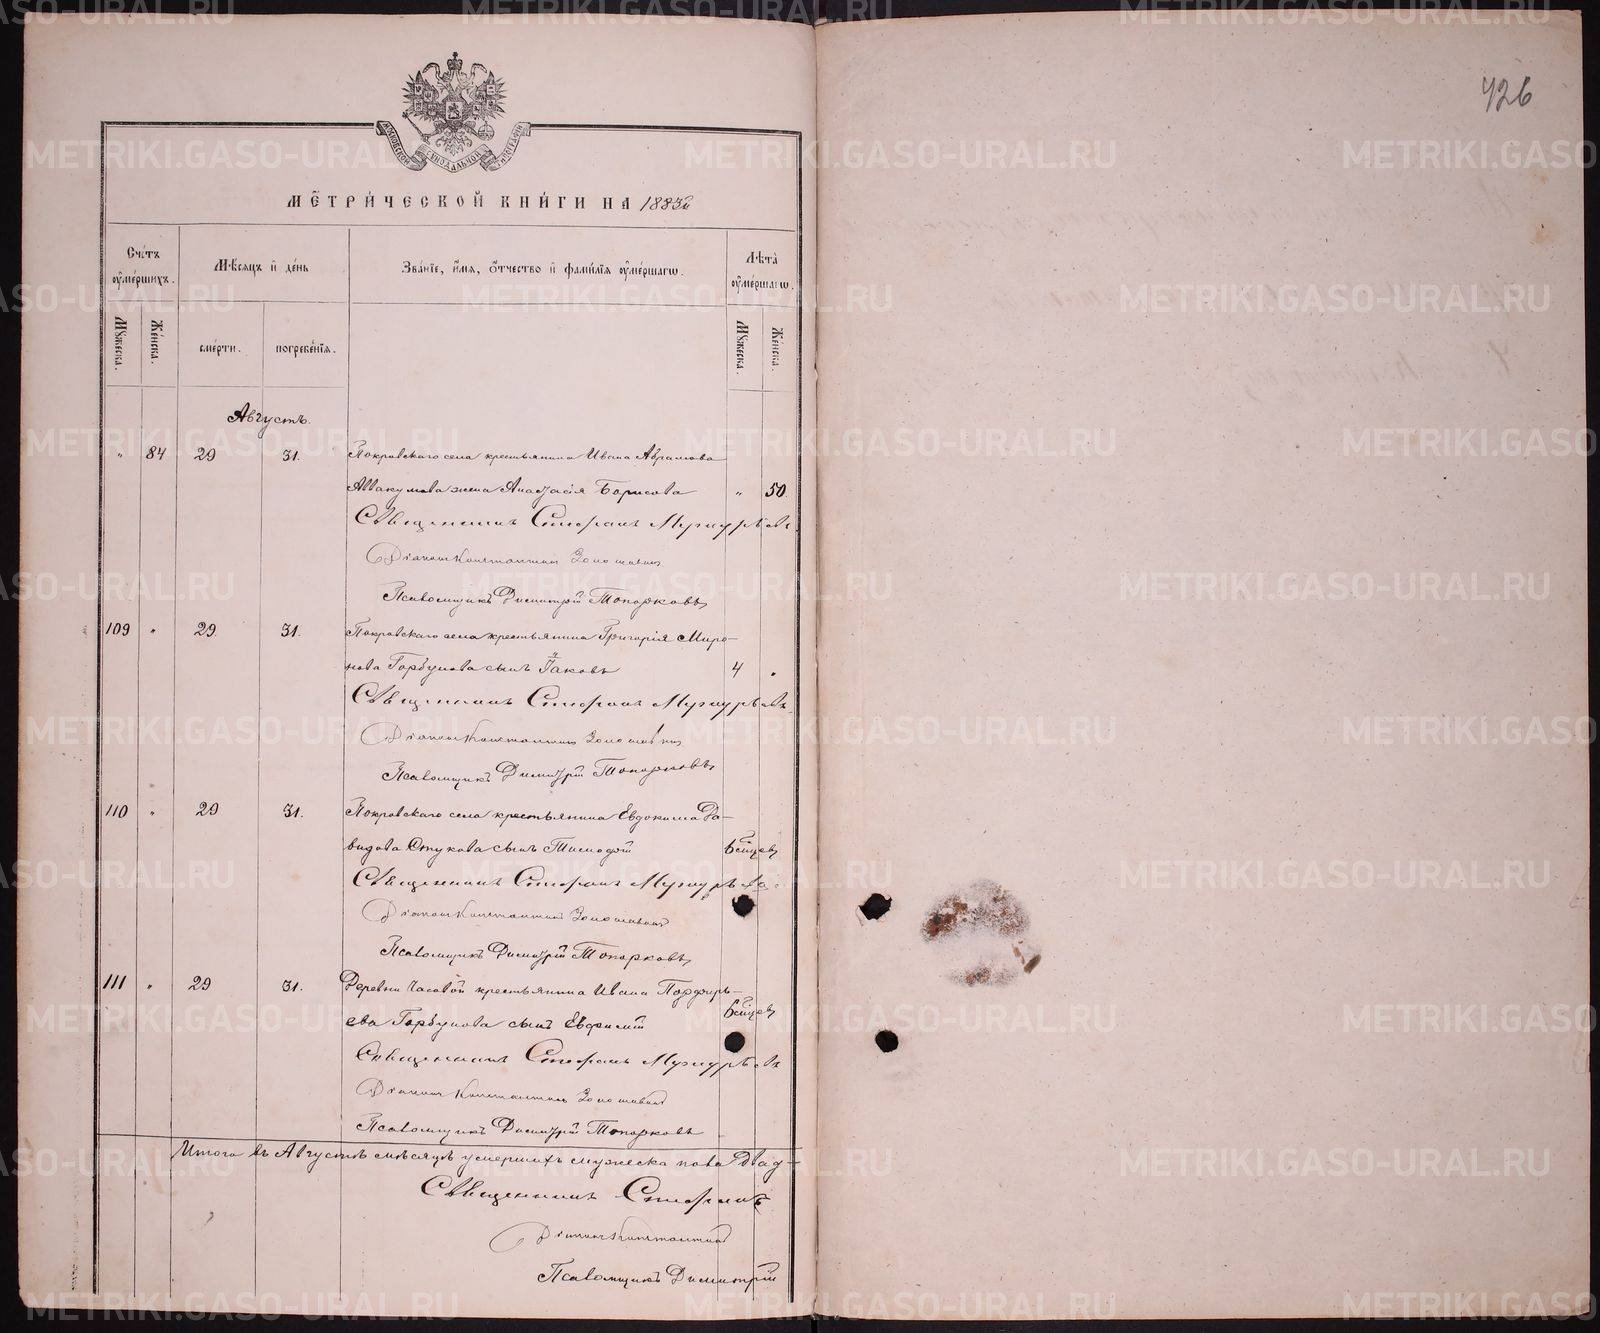 426
МОСКОВСКОЙ СѴНОДАЛЬНОЙ ТИПОГРАФІИ
МЕТРИЧЕСКОЙ КНИГИ НА 1883й
Счетъ оумершихъ.
Мѣсяцъ и день
Званіе, имя, отчество и фамилія оумершагѡ.
Лѣта оумершагѡ.
Мꙋжеска.
Женска.
смерти.
погребенія.
Мꙋжеска.
Женска.
Августъ.
„ 84 29 31. Покровскаго села крестьянина Ивана Абрамова
Аввакумова жена Анастасія Борисова „ 50
Священникъ Стефанъ
Діаконъ Константинъ
Псаломщикъ Димитрій Топорковъ
109 „ 29. 31. Покровскаго села крестьянина Григорія Миро-
нова Горбунова сынъ Іаковъ 4 „
Священникъ Стефанъ
Діаконъ Константинъ
Псаломщикъ Димитрій Топорковъ
110 „ 29 31. Покровскаго села крестьянина Евдокима Да-
видова Стукова сынъ Тимофей 6
Священникъ Стефанъ
Діаконъ Константинъ
Псаломщикъ Димитрій Топорковъ
111 „ 29 31. Деревни Часовой крестьянина Ивана Порфирь-
ева Горбунова сынъ Евфимій 6
Священникъ Стефанъ
Діаконъ Константинъ
Псаломщикъ Димитрій Топорковъ
Итого въ Августѣ мѣсяцѣ умершихъ мужеска пола Двад-
Священникъ Стефанъ
Діаконъ Константинъ
Псаломщикъ Димитрій
METRIKI.GASO-URAL.RU